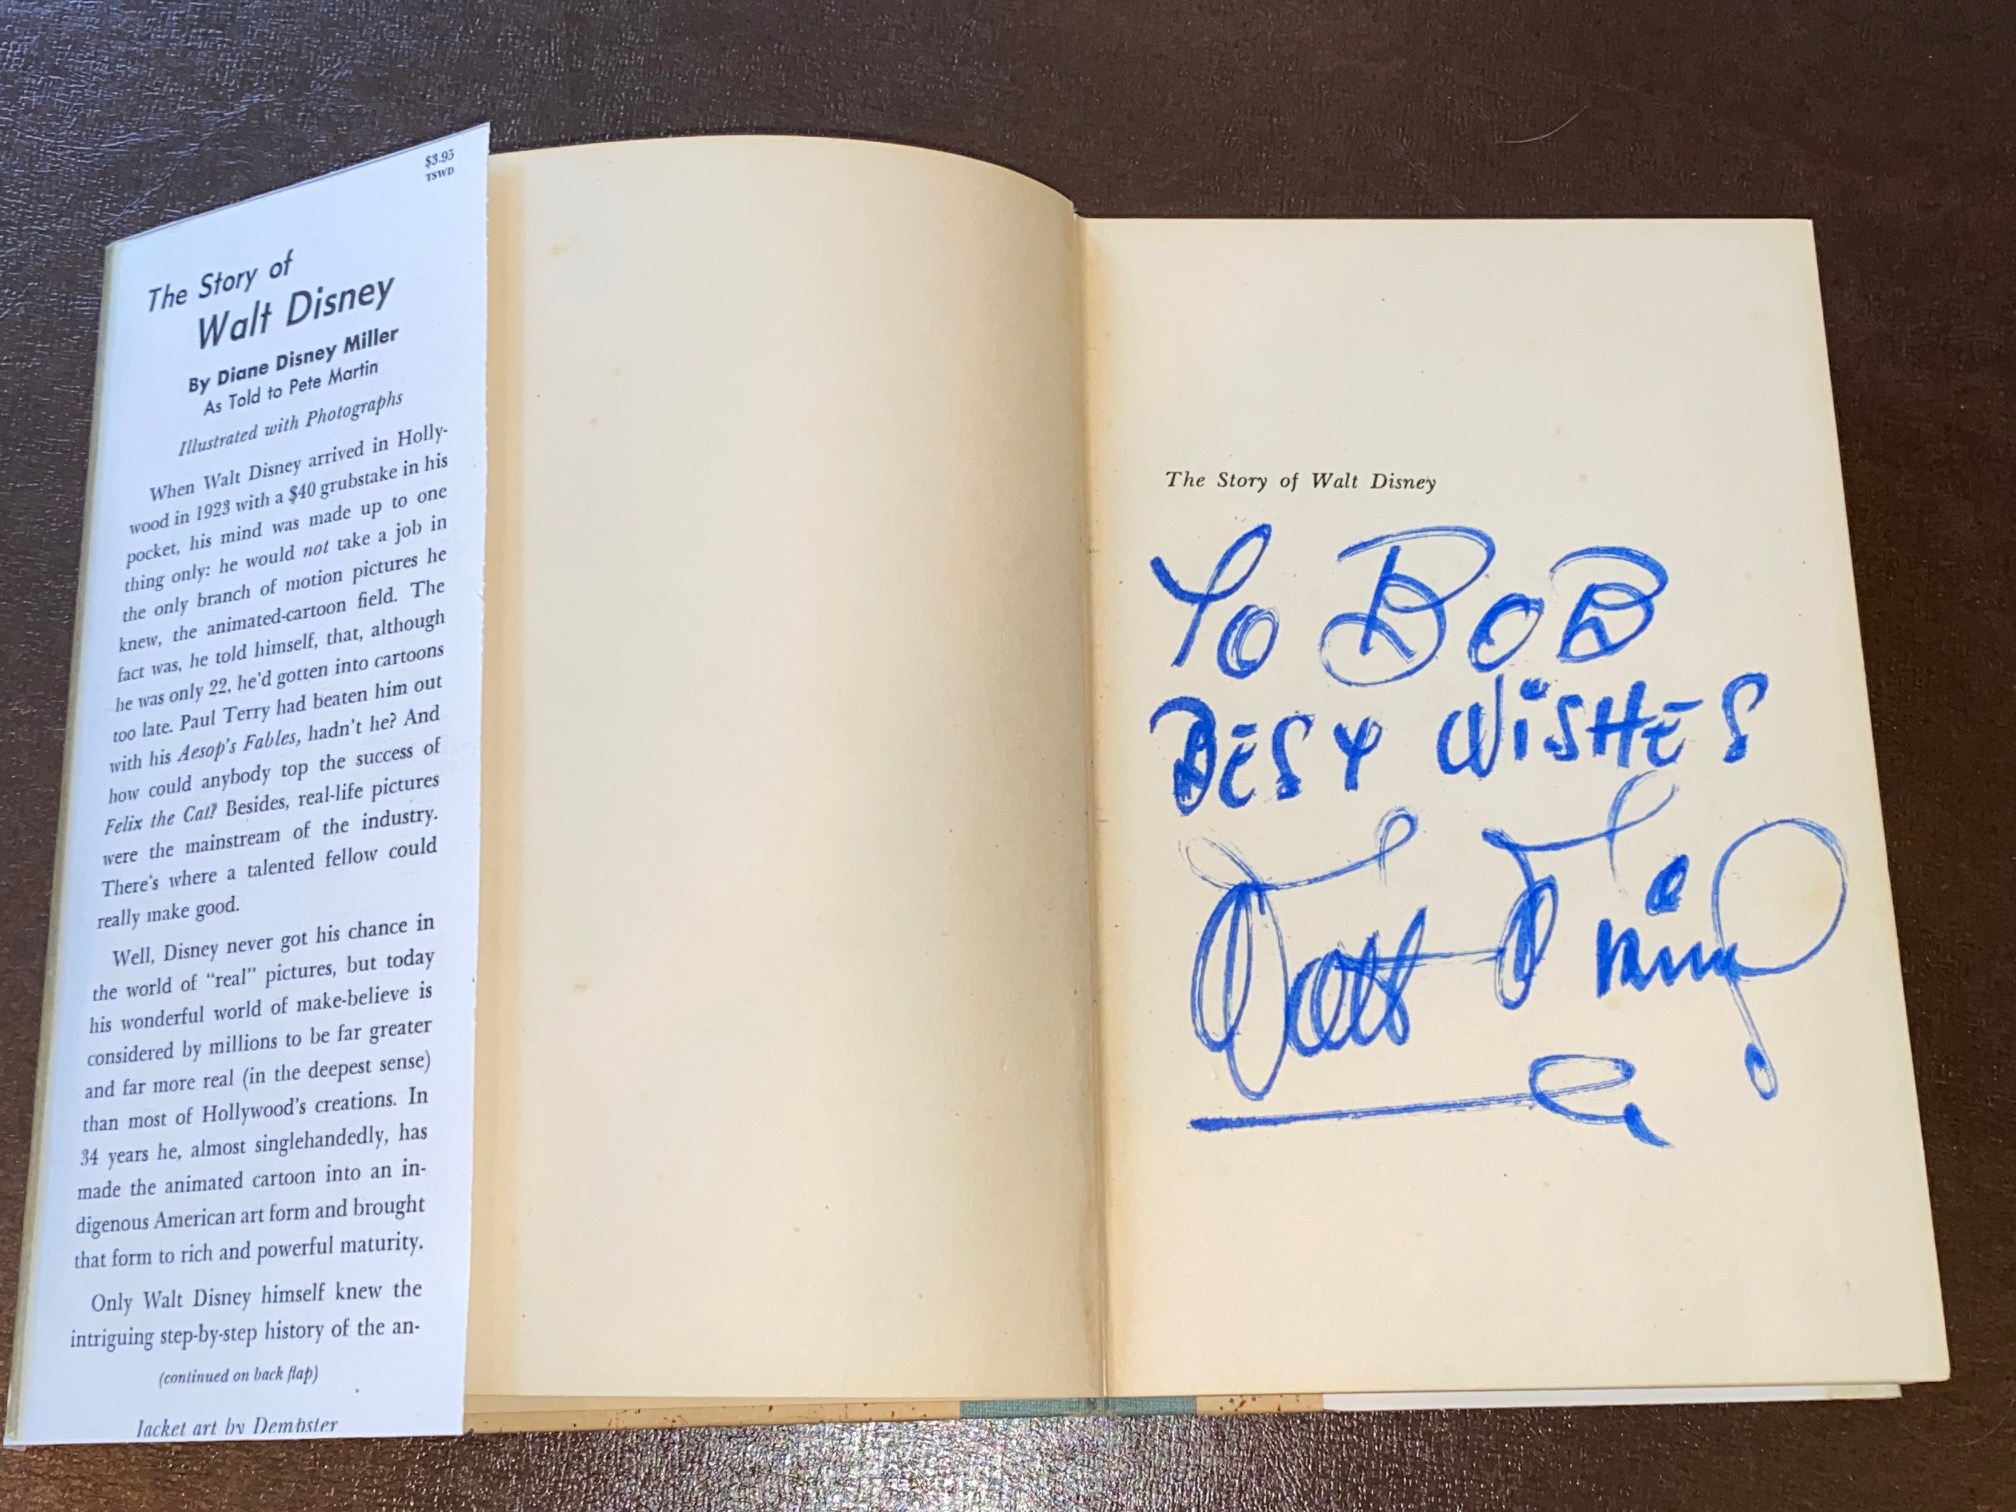 $3.95
TSWD
The Story of
Walt Disney
By Diane Disney Miller
As Told to Pete Martin
Illustrated with Photographs
When Walt Disney arrived in Holly-
wood in 1923 with a $40 grubstake in his
pocket, his mind was made up to one
thing only: he would not take a job in
the only branch of motion pictures he
knew, the animated-cartoon field. The
fact was, he told himself, that, although
he was only 22, he'd gotten into cartoons
too late. Paul Terry had beaten him out
with his Aesop's Fables, hadn't he? And
how could anybody top the success of
Felix the Cat? Besides, real-life pictures
were the mainstream of the industry.
There's where a talented fellow could
really make good.
Well, Disney never got his chance in
the world of "real" pictures, but today
his wonderful world of make-believe is
considered by millions to be far greater
and far more real (in the deepest sense)
than most of Hollywood's creations. In
34 years he, almost singlehandedly, has
made the animated cartoon into an in-
digenous American art form and brought
that form to rich and powerful maturity.
Only Walt Disney himself knew the
intriguing step-by-step history of the an-
(continued on back flap)
Jacket art by Dempster
The Story of Walt Disney
TO BOB
BEST WISHES
Walt Disney